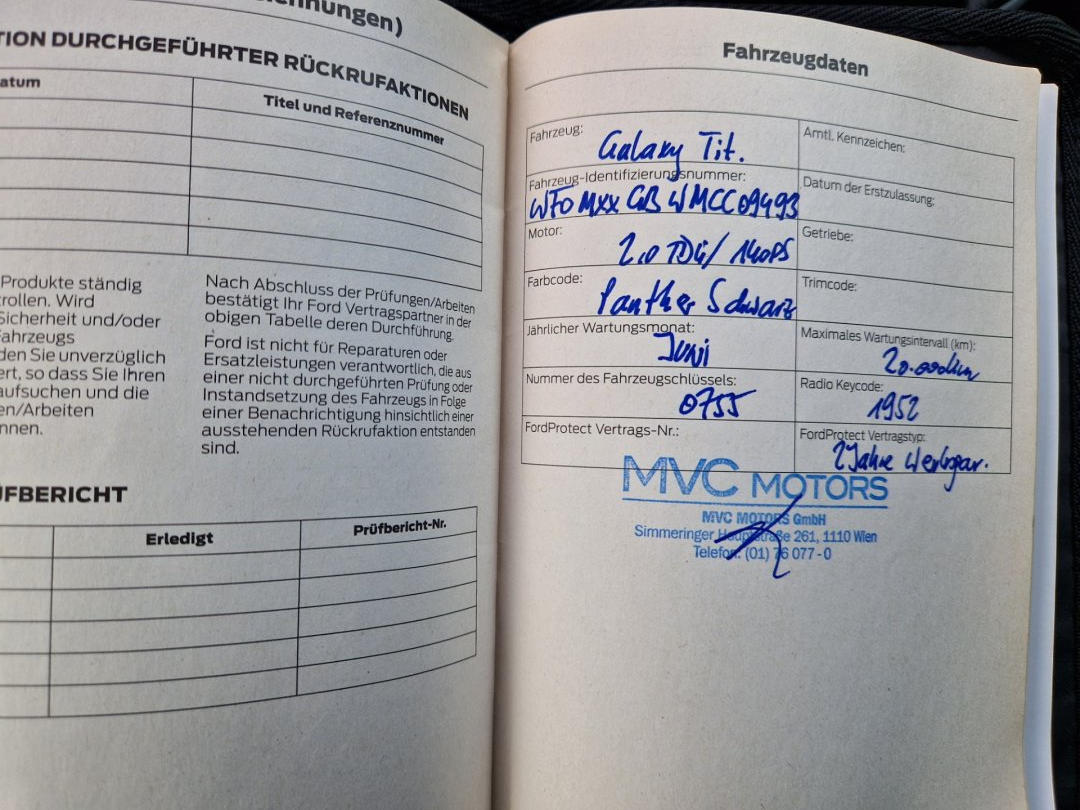 nnungen)
TION DURCHGEFÜHRTER RÜCKRUFAKTIONEN
atum
Titel und Referenznummer
Produkte ständig
rollen. Wird
Sicherheit und/oder
Fahrzeugs
den Sie unverzüglich
ert, so dass Sie Ihren
aufsuchen und die
en/Arbeiten
nnen.
Nach Abschluss der Prüfungen/Arbeiten
bestätigt Ihr Ford Vertragspartner in der
obigen Tabelle deren Durchführung.
Ford ist nicht für Reparaturen oder
Ersatzleistungen verantwortlich, die aus
einer nicht durchgeführten Prüfung oder
Instandsetzung des Fahrzeugs in Folge
einer Benachrichtigung hinsichtlich einer
ausstehenden Rückrufaktion entstanden
sind.
ÜFBERICHT
Erledigt
Prüfbericht-Nr.
Fahrzeugdaten
Fahrzeug:
Galaxy Tit.
Amtl. Kennzeichen:
Fahrzeug-Identifizierungsnummer:
WF0MXXGBWMCC09493
Datum der Erstzulassung:
Motor:
2,0 TDCi/ 140PS
Getriebe:
Farbcode:
Panther Schwarz
Trimcode:
Jährlicher Wartungsmonat:
Juni
Maximales Wartungsintervall (km):
20.000km
Nummer des Fahrzeugschlüssels:
0755
Radio Keycode:
1952
FordProtect Vertrags-Nr.:
FordProtect Vertragstyp:
2 Jahre
MVC MOTORS
MVC MOTORS GmbH
Simmeringer Hauptstraße 261, 1110 Wien
Telefon: (01) 76 077-0